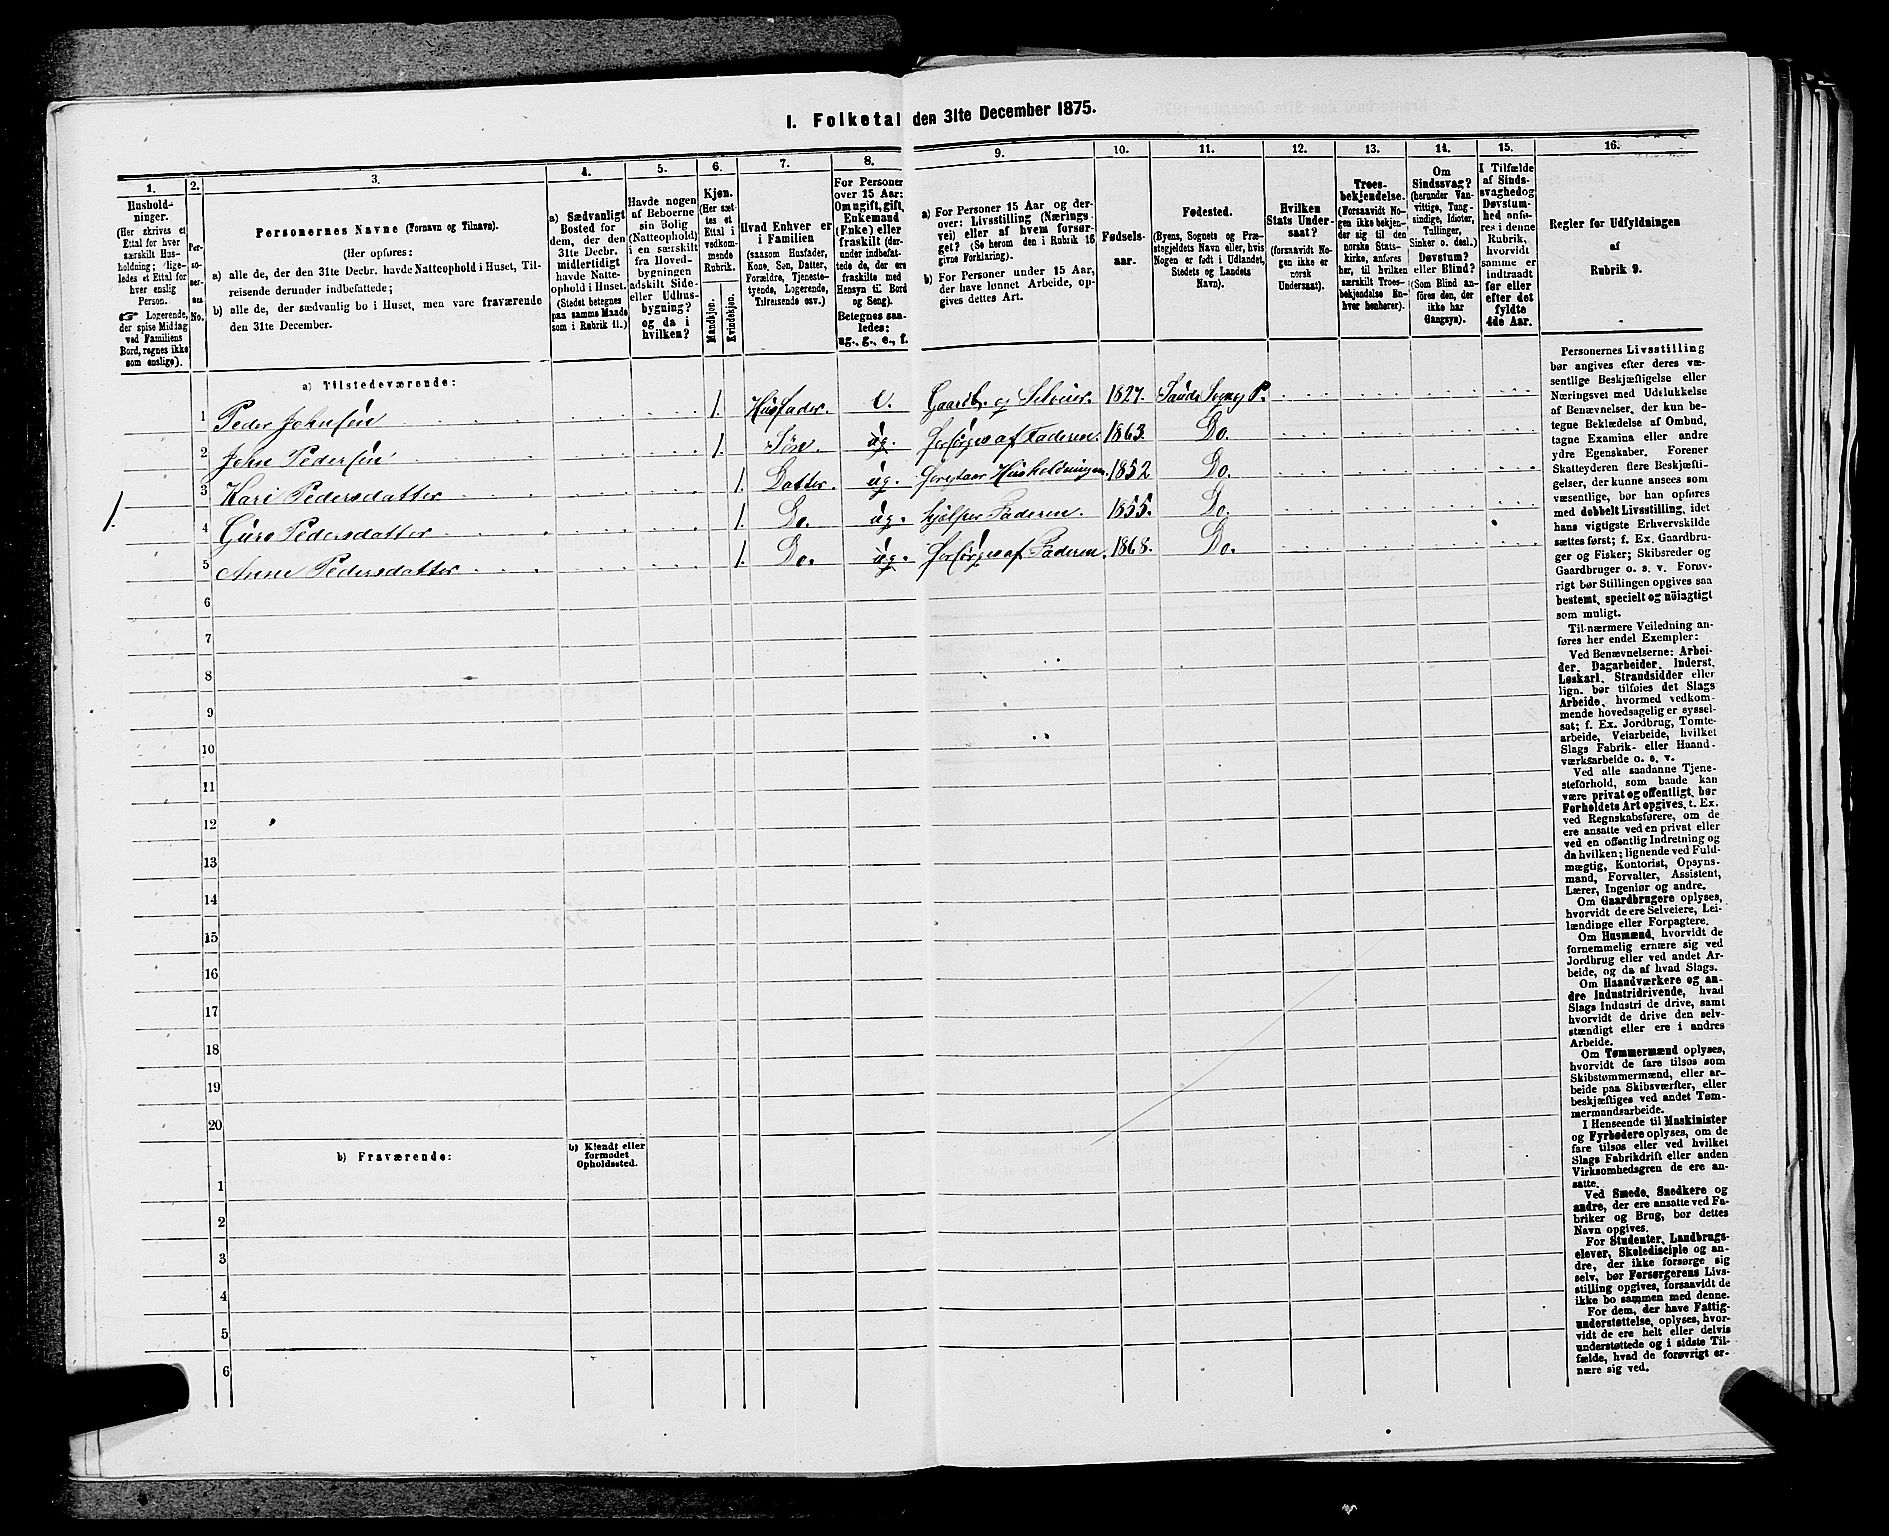 I. Folketal den 31te December 1875.
1.
2.
3.
4.
5.
6.
7.
8.
9.
10.
11.
12.
13.
14.
15.
16.
Hushold-
ninger.
(Her skrives et
Ettal for hver
særskilt Hus-
holdning; lige-
ledes et Ettal for
hver enslig
Person.
☞ Logerende,
der spise Middag
ved Familiens
Bord, regnes ikke
som enslige).
Per-
so-
ner-
nes
No.
Personernes Navne (Fornavn og Tilnavn).
(Her opføres:
a) alle de, der den 31te Decbr. havde Natteophold i Huset, Til-
reisende derunder indbefattede;
b) alle de, der sædvanlig bo i Huset, men vare fraværende
den 31te December.
a) Sædvanligt
Bosted for
dem, der den
31te Decbr.
midlertidigt
havde Natte-
ophold i Huset.
(Stedet betegnes
paa samme Maade
som i Rubrik 11.)
Havde nogen
af Beboerne
sin Bolig
(Natteophold)
i en særskilt
fra Hoved-
bygningen
adskilt Side-
eller Udhus-
bygning?
og da i
hvilken?
Kjøn.
(Her sæt-
tes et
Ettal i
vedkom-
mende
Rubrik.
Mandkjøn.
Kvindekjøn.
Hvad Enhver er
i Familien
(saasom Husfader,
Kone, Søn, Datter,
Forældre, Tjeneste-
tyende, Logerende,
Tilreisende osv.)
For Personer
over 15 Aar:
Om ugift, gift,
Enkemand
(Enke) eller
fraskilt (der-
under indbefat-
tede de, der ere
fraskilte med
Hensyn til Bord
og Seng).
Betegnes saa-
ledes:
ug., g., e., f.
a) For Personer 15 Aar og der-
over: Livsstilling (Nærings-
vei) eller af hvem forsør-
get? (Se herom den i Rubrik 16
givne Forklaring).
b) For Personer under 15 Aar,
der have lønnet Arbeide, op-
gives dettes Art.
Fødsels-
aar.
Fødested.
(Byens, Sognets og Præ-
stegjeldets Navn eller, hvis
Nogen er født i Udlandet,
Stedets og Landets
Navn).
Hvilken
Stats Under-
saat?
(forsaavidt No-
gen ikke er
norsk
Undersaat).
Troes-
bekjendelse.
(Forsaavidt No-
gen ikke bekjen-
der sig til den
norske Stats-
kirke, anføres
her, til hvilken
særskilt Troes-
bekjendelse En-
hver henhører).
Om
Sindssvag?
(herunder Van-
vittige, Tung-
sindige, Idioter,
Tullinger,
Sinker o. desl.)
Døvstum?
eller Blind?
(Som Blind an-
føres den, der
ikke har
Gangsyn).
I Tilfælde
af Sinds-
svaghed og
Døvstum-
hed anfø-
res i denne
Rubrik,
hvorvidt
samme er
indtraadt
før eller
efter det
fyldte
4de Aar.
Regler for Udfyldningen
af
Rubrik 9.
a) Tilstedeværende:
1 Peder Johnsen 1. Husfader. e. Gaardbr. og Selveier. 1827. Saude Sogn og P.
2 John Pedersen 1. Søn ug. forsørges af Faderen. 1863. Do.
3 Kari Pedersdatter 1. Datter. ug. forestaar Husholdningen. 1852 Do.
1.
4 Guro Pedersdatter 1. Do. ug. hjælper Faderen. 1855. Do.
5 Anne Pedersdatter 1. Do. ug. forsørges af Faderen. 1868. Do.
6
7
8
9
10
11
12
13
14
15
16
17
18
19
20
b) Fraværende:
b) Kjendt eller
formodet
Opholdssted.
1
2
3
4
5
6
Personernes Livsstilling
bør angives efter deres væ-
sentlige Beskjæftigelse eller
Næringsvei med Udelukkelse
af Benævnelser, der kun be-
tegne Beklædelse af Ombud,
tagne Examina eller andre
ydre Egenskaber. Forener
Skatteyderen flere Beskjæfti-
gelser, der kunne ansees som
væsentlige, bør han opføres
med dobbelt Livsstilling, idet
hans vigtigste Erhvervskilde
sættes først; f. Ex. Gaardbru-
ger og Fisker; Skibsreder og
Gaardbruger o. s. v. Forøv-
rigt bør Stillingen opgives saa
bestemt, specielt og nøiagtigt
som muligt.
Til nærmere Veiledning an-
føres her endel Exempler:
Ved Benævnelserne: Arbei-
der, Dagarbeider, Inderst,
Løskarl, Strandsidder eller
lign. bør tilføies det Slags
Arbeide, hvormed vedkom-
mende hovedsagelig er syssel-
sat; f. Ex. Jordbrug, Tomte-
arbeide, Veiarbeide, hvilket
Slags Fabrik- eller Haand-
værksarbeide o. s. v.
Ved alle saadanne Tjene-
steforhold, som baade kan
være privat og offentligt, bør
Forholdets Art opgives, t. Ex.
ved Regnskabsførere, om de
ere ansatte ved en privat eller
ved en offentlig Indretning og
da hvilken; lignende ved Fuld-
mægtig, Kontorist, Opsyns-
mand, Forvalter, Assistent,
Lærer, Ingeniør og andre.
Om Gaardbrugere oplyses,
hvorvidt de ere Selveiere, Lei-
lændinge eller Forpagtere.
Om Husmænd, hvorvidt de
fornemmelig ernære sig ved
Jordbrug eller ved andet Ar-
beide, og da af hvad Slags.
Om Haandværkere og an-
dre Industridrivende, hvad
Slags Industri de drive, samt
hvorvidt de drive den selv-
stændigt eller ere i andres
Arbeide.
Om Tømmermænd oplyses,
hvorvidt de fare tilsøs som
Skibstømmermænd, eller ar-
beide paa Skibsværfter, eller
beskjæftiges ved andet Tøm-
mermandsarbeide.
I Henseende til Maskinister
og Fyrbødere oplyses, om de
fare tilsøs eller ved hvilket
Slags Fabrikdrift eller anden
Virksomhedsgren de ere an-
satte.
Ved Smede, Snedkere og
andre, der ere ansatte ved Fa-
briker og Brug, bør dettes
Navn opgives.
For Studenter, Landbrugs-
elever, Skoledisciple og an-
dre, der ikke forsørge sig
selv, bør Forsørgerens Livs-
stilling opgives, forsaavidt de
ikke bo sammen med denne.
For dem, der have Fattig-
understøttelse, oplyses, hvor-
vidt de ere helt eller delvis
understøttede og i sidste Til-
fælde, hvad de forøvrigt er-
nære sig ved.